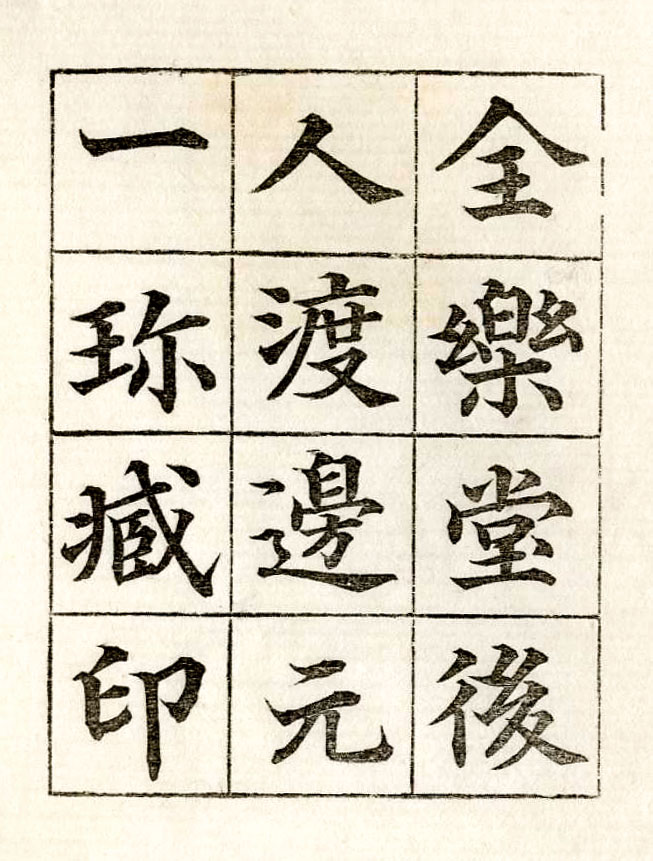 全樂堂後
人渡邊元
一珎臧印